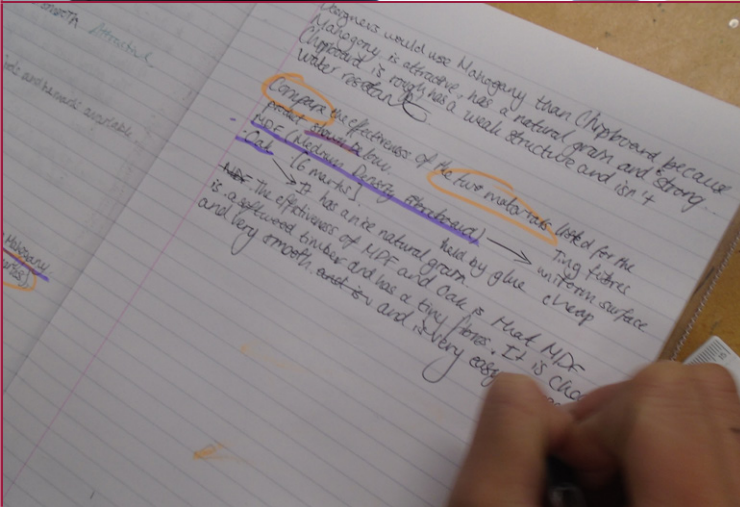 Smooth Attractive
and hazards available.
Mahogany.
Designers would use Mahogany than Chipboard because
Mahogony, is attractive, has a natural grain and strong...
Chipboard is rough has a weak structure and isn't
water
Compare the effectiveness of the two materials listed for the
product shown below.
- MDF (Medium Density Fibreboard) → Tiny fibres
· Oak [6 marks] held by glue uniform surface
→ It has a nice natural grain cheap
The effectiveness of MDF and Oak is that MDF
is a softwood timber and has a tiny fibres. It is
and very smooth and is very easy